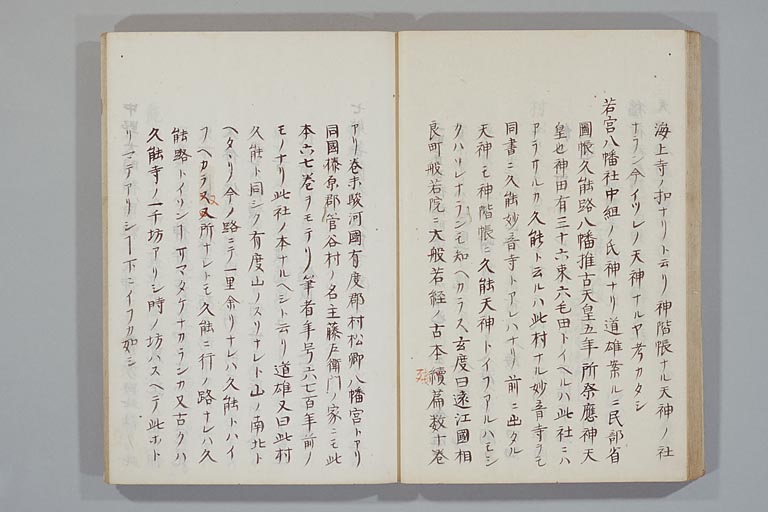 海上寺ノ扣ナリト云リ神階帳ナル天神ノ社
ナラン今イツレノ天神ナルヤ考カタシ
若宮八幡社中組ノ氏神ナリ道雄案ルニ民部省
圖帳久能路八幡推古天皇五年所祭應神天
皇也神田有三十六束六毛田トイヘルハ此社ニハ
アラサルカ久能ト云ルハ此村ナル妙音寺ヲモ
同書ニ久能妙音寺トアレハナリ前ニ出タル
天神モ神階帳ニ久能天神トイフアルハモシ
クハソレナランモ知ヘカラス玄度曰遠江國相
良町般若院ニ大般若経ノ古本殘篇数十巻
アリ巻末駿河國有度郡村松郷八幡宮トアリ
同國榛原郡管谷村ノ名主藤左衛門ノ家ニモ此
本六七巻ヲモテリ筆者年号六七百年前ノ
モノナリ此社ノ本ナルヘシト云リ道雄又曰此村
久能ト同シク有度山ノスソナレト山ノ南北ト
ヘタヽリ今ノ路ニテ一里余リナレハ久能トハイ
フヘカラヌ所ナレトモ久能ニ行ノ路ナレハ久
能路トイソンモサマタケナカラシカ又古クハ
久能寺ノ一千坊アリシ時ノ坊ハスヘテ此ホト
リマテアリシヿ下ニイフカ如シ